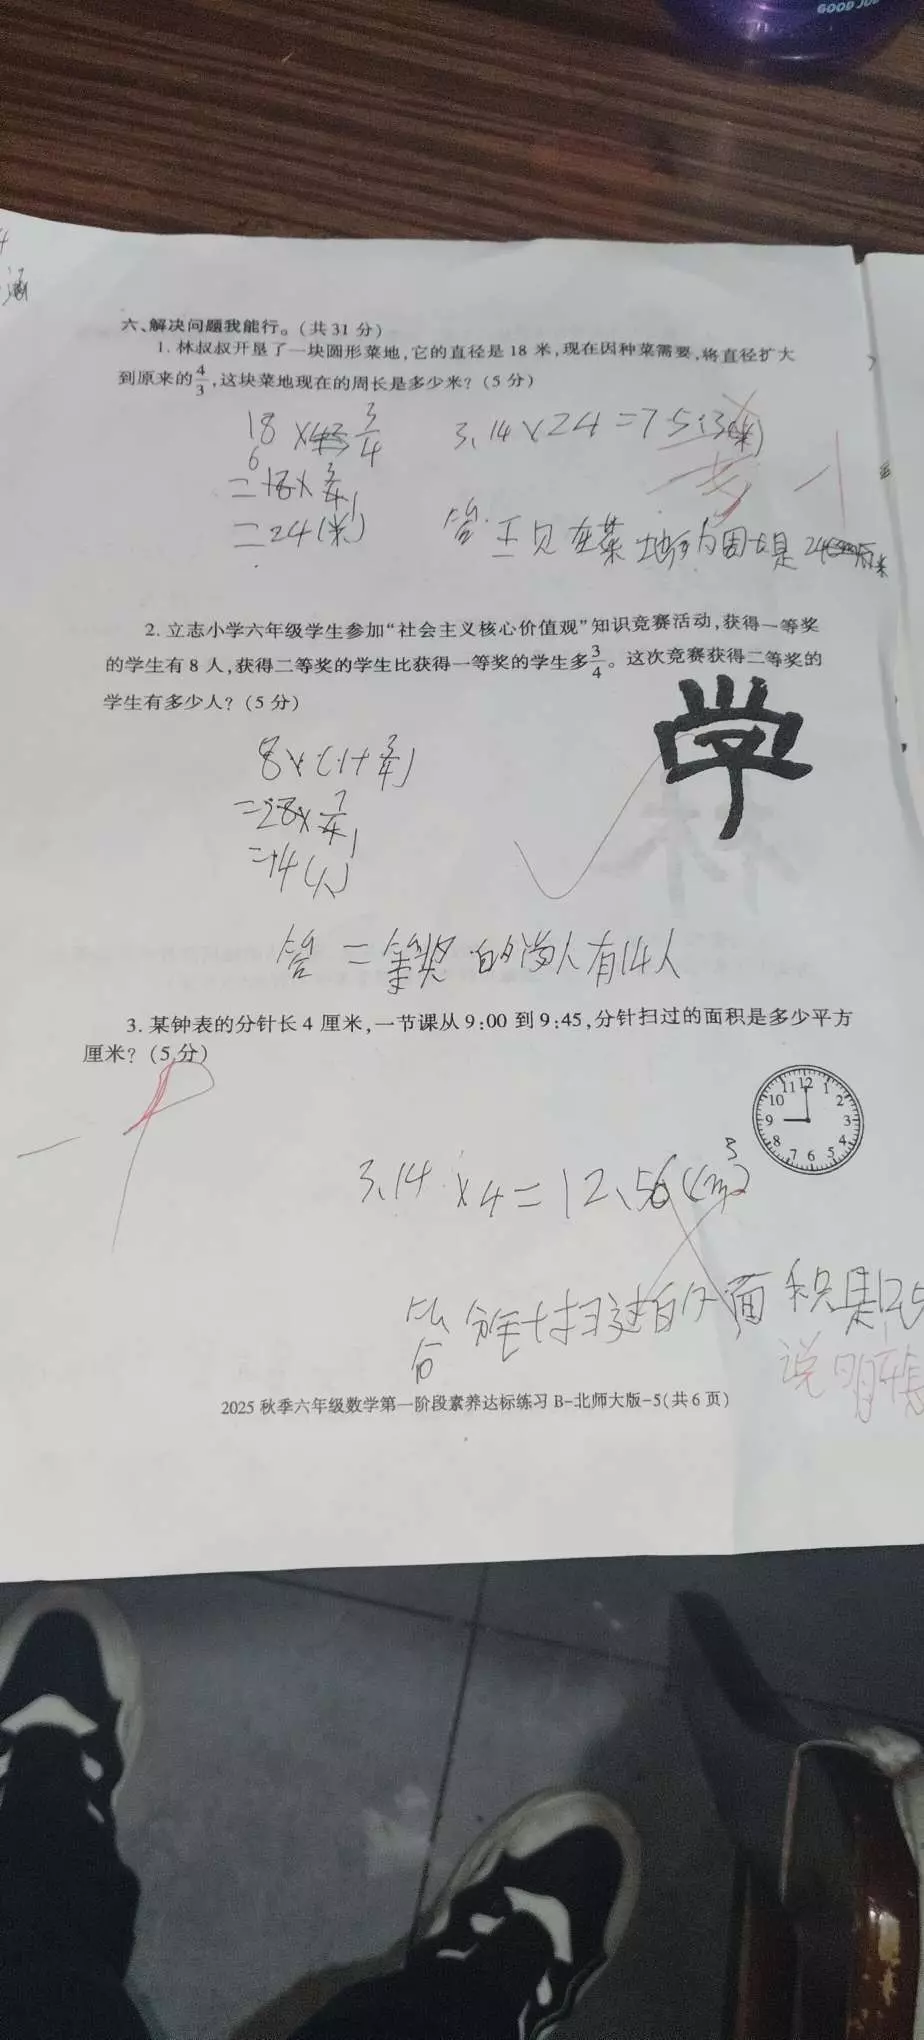 GOOD JOB
涵
六、解决问题我能行。(共31分)
1. 林叔叔开垦了一块圆形菜地,它的直径是18米,现在因种菜需要,将直径扩大
到原来的4/3,这块菜地现在的周长是多少米?(5分)
18 × 3/4 3.14×24=75.3(米)
=18×3/4
=24(米) 答 现在菜地的周长是24 米
2. 立志小学六年级学生参加“社会主义核心价值观”知识竞赛活动,获得一等奖
的学生有8人,获得二等奖的学生比获得一等奖的学生多3/4。这次竞赛获得二等奖的
学生有多少人?(5分)
学
林
8×(1+3/4)
=28×7/4
=14(人)
答 二等奖的 人有14人
3. 某钟表的分针长4厘米,一节课从9:00到9:45,分针扫过的面积是多少平方
厘米?(5分)
11 12 1
10 2
9 3
8 4
7 6 5
3.14×4=12.56(cm²)
答 分针扫过的 面积是12.5
说明
2025秋季六年级数学第一阶段素养达标练习B-北师大版-5(共6页)